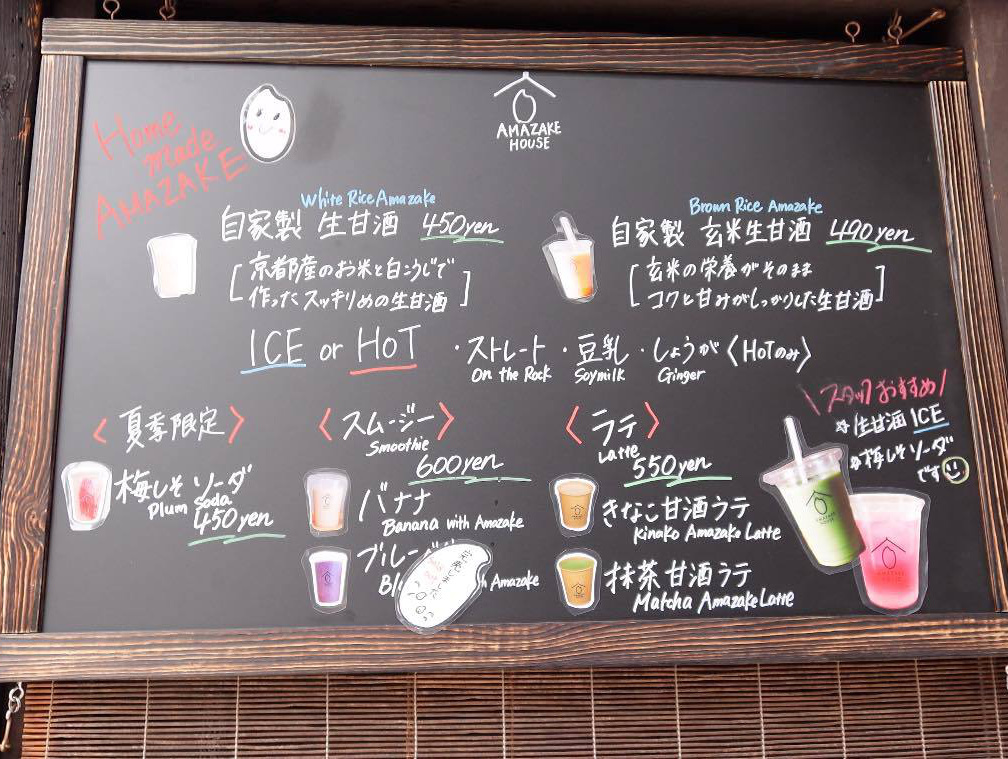 Home
made
AMAZAKE
AMAZAKE
HOUSE
White Rice Amazake
自家製 生甘酒 450yen
[京都産のお米と白こうじで
作ったスッキリめの生甘酒]
Brown Rice Amazake
自家製 玄米生甘酒 490yen
[玄米の栄養がそのまま
コクと甘みがしっかりした生甘酒]
ICE or HOT ・ストレート・豆乳・しょうが〈HOTのみ〉
On the Rock Soymilk Ginger
〈夏季限定〉
梅しそソーダ
Plum Soda
450yen
〈スムージー〉
Smoothie
600yen
バナナ
Banana with Amazake
ブルーベ
Bl
h Amazake
完売しました
〈ラテ〉
Latte
550yen
きなこ甘酒ラテ
Kinako Amazake Latte
抹茶甘酒ラテ
Matcha Amazake Latte
\スタッフおすすめ/
☆生甘酒 ICE
☆梅しそソーダ
です